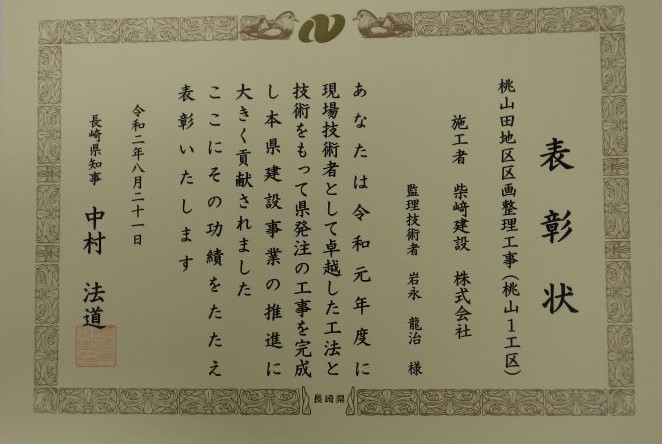 表彰状
桃山田地区区画整理工事(桃山1工区)
施工者 柴﨑建設 株式会社
監理技術者 岩永 龍治 様
あなたは令和元年度に
現場技術者として卓越した工法と
技術をもって県発注の工事を完成
し本県建設事業の推進に
大きく貢献されました
ここにその功績をたたえ
表彰いたします
令和二年八月二十一日
長崎県知事 中村 法道
長崎県